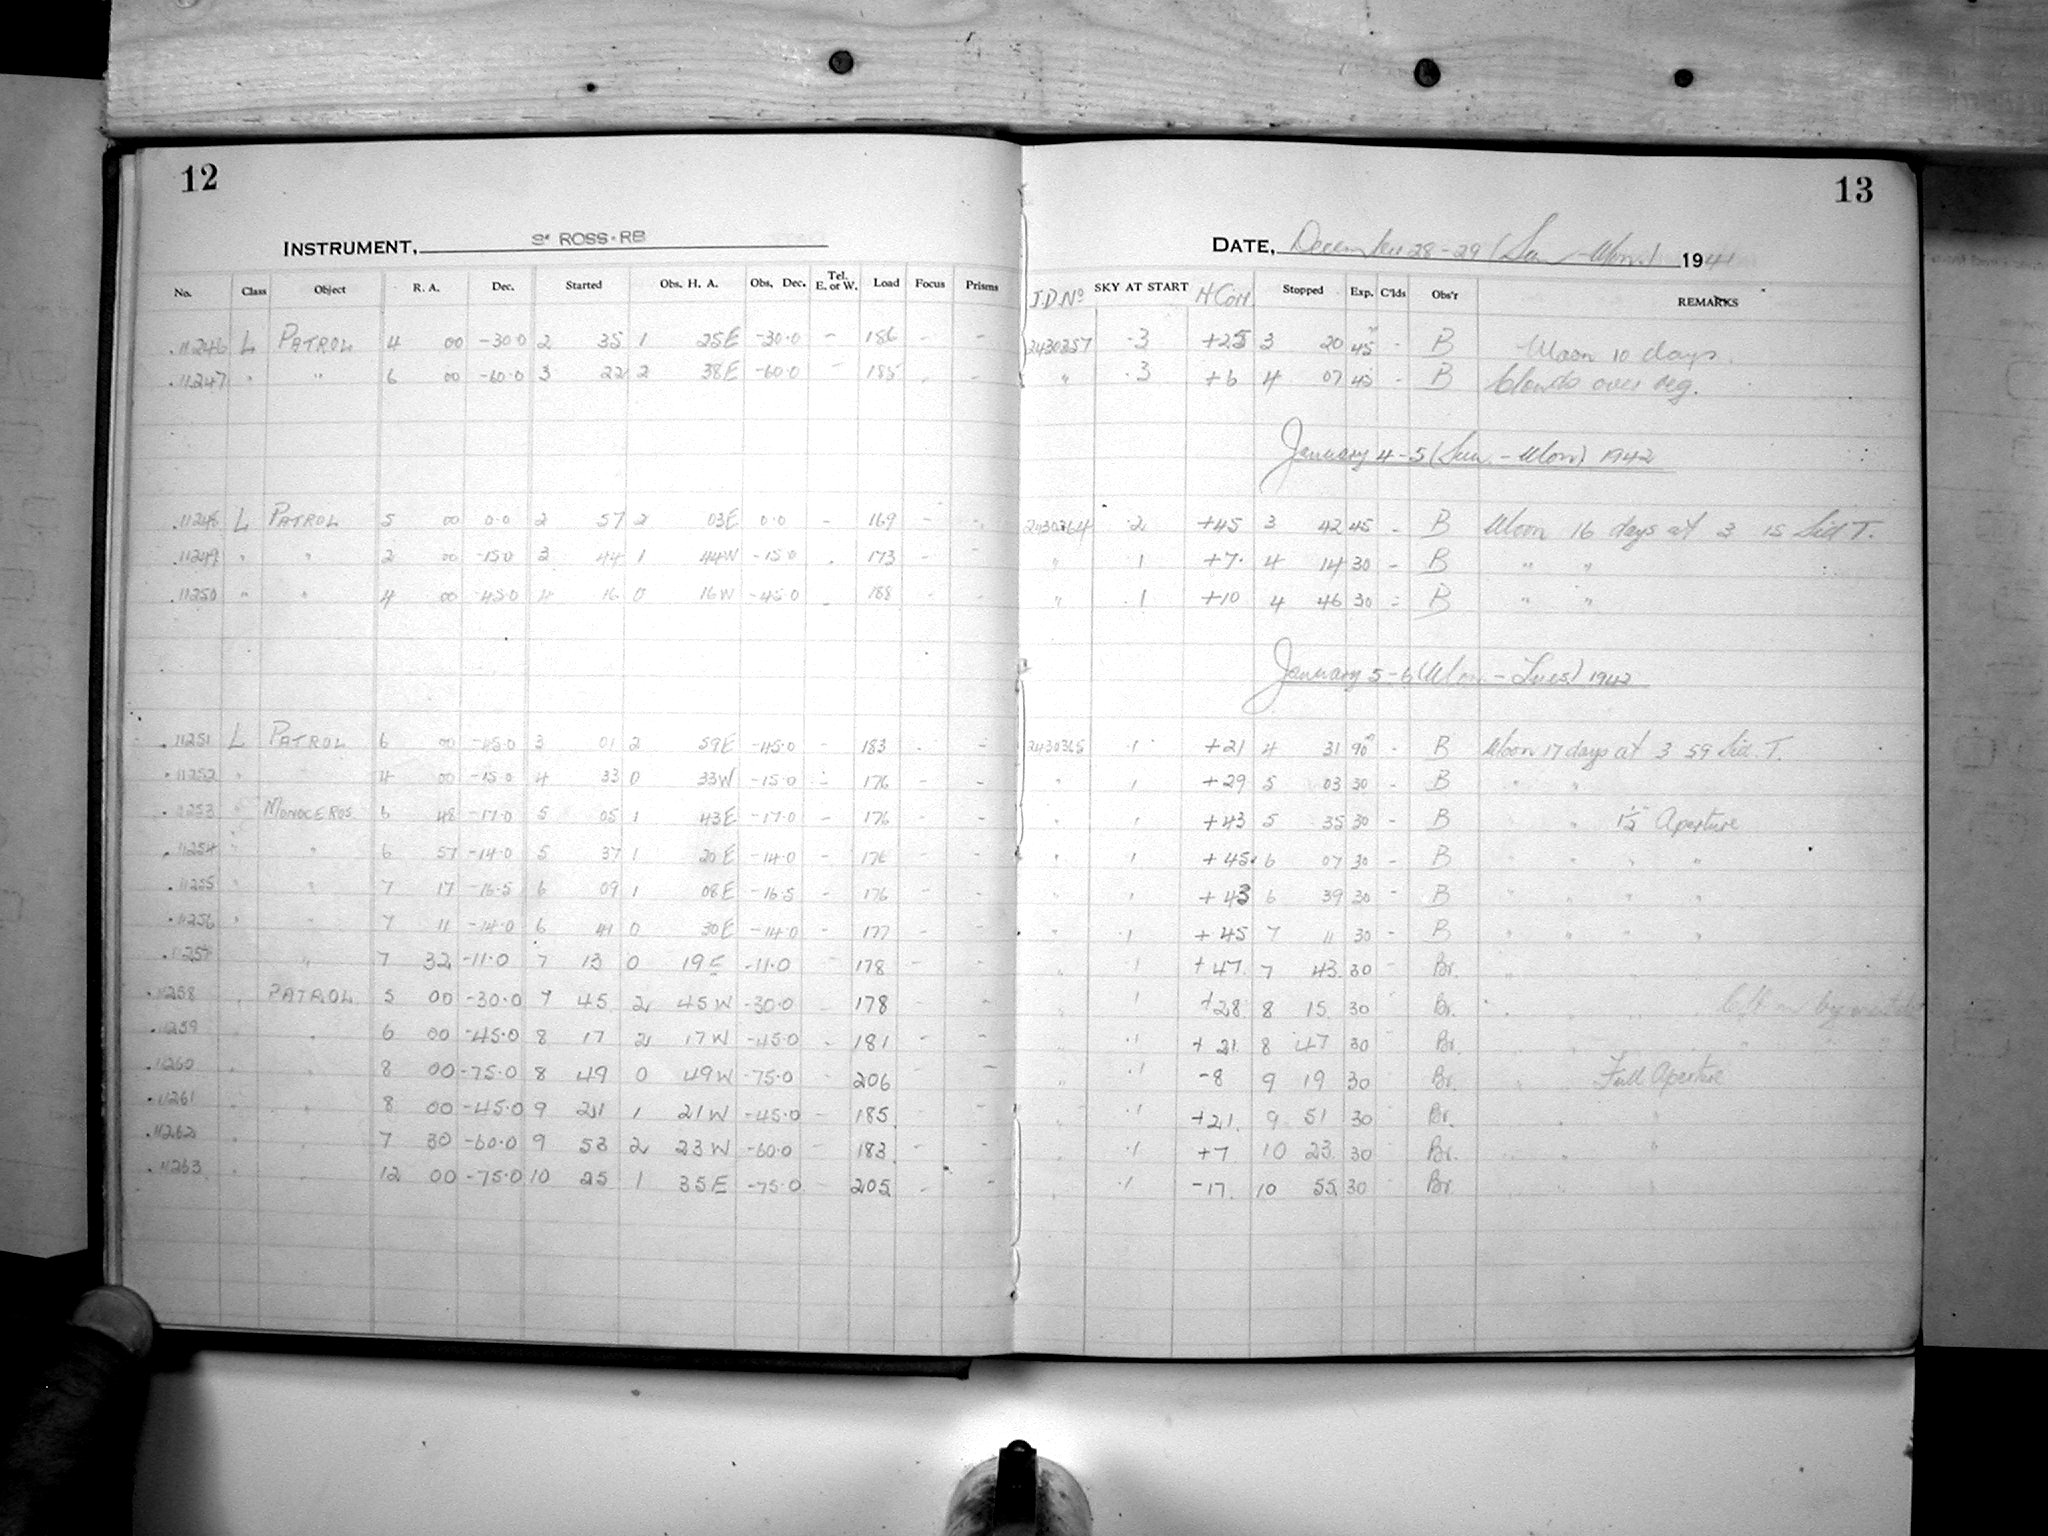 12
13
INSTRUMENT, 3" ROSS-RB
DATE, December 28-29 (Sun-Mon) 1941
No. Class Object R. A. Dec. Started Obs. H. A. Obs. Dec. Tel. E. or W. Load Focus Prisms J.D.Nº SKY AT START H Corr Stopped Exp. C'lds Obs'r REMARKS
11246 L PATROL 4 00 -30.0 2 35 1 25E -30.0 - 186 - - 2430357 .3 +25 3 20 45m - B Moon 10 days.
11247 " " 6 00 -60.0 3 22 2 38E -60.0 - 185 - - " .3 +6 4 07 45 - B Clouds over reg.
January 4-5 (Sun. - Mon) 1942
11248 L PATROL 5 00 0.0 2 57 2 03E 0.0 - 169 - - 2430364 .2 +45 3 42 45 - B Moon 16 days at 3 15 Sid T.
11249 " " 2 00 -15.0 3 44 1 44W -15.0 - 173 - - " 1 +7 4 14 30 - B " "
11250 " " 4 00 -45.0 4 16 0 16W -45.0 - 188 - - " .1 +10 4 46 30 - B " "
January 5-6 (Mon - Tues) 1942
11251 L PATROL 6 00 -45.0 3 01 2 59E -45.0 - 183 - - 2430365 .1 +21 4 31 90m - B Moon 17 days at 3 59 Sid. T.
11252 " " 4 00 -15.0 4 33 0 33W -15.0 - 176 - - " 1 +29 5 03 30 - B " "
11253 " MONOCEROS 6 48 -17.0 5 05 1 43E -17.0 - 176 - - " 1 +43 5 35 30 - B " " 1½" Aperture
11254 " " 6 57 -14.0 5 37 1 20E -14.0 - 176 - - " 1 +45 6 07 30 - B " " " "
11255 " " 7 17 -16.5 6 09 1 08E -16.5 - 176 - - " 1 +43 6 39 30 - B " " " "
11256 " " 7 11 -14.0 6 41 0 30E -14.0 - 177 - - " .1 +45 7 11 30 - B " " " "
11257 " 7 32 -11.0 7 13 0 19E -11.0 - 178 - - " 1 +47 7 43 30 - Br.
11258 " PATROL 5 00 -30.0 7 45 2 45W -30.0 - 178 - - " 1 +28 8 15 30 - Br.
11259 " " 6 00 -45.0 8 17 2 17W -45.0 - 181 - - " .1 +21 8 47 30 - Br.
11260 " " 8 00 -75.0 8 49 0 49W -75.0 - 206 - - " .1 -8 9 19 30 - Br. " Full Aperture
11261 " " 8 00 -45.0 9 21 1 21W -45.0 - 185 - " .1 +21 9 51 30 - Br. " "
11262 " " 7 30 -60.0 9 53 2 23W -60.0 - 183 - - " .1 +7 10 23 30 - Br. " "
11263 " " 12 00 -75.0 10 25 1 35E -75.0 - 205 - - " .1 -17 10 55 30 - Br. " "